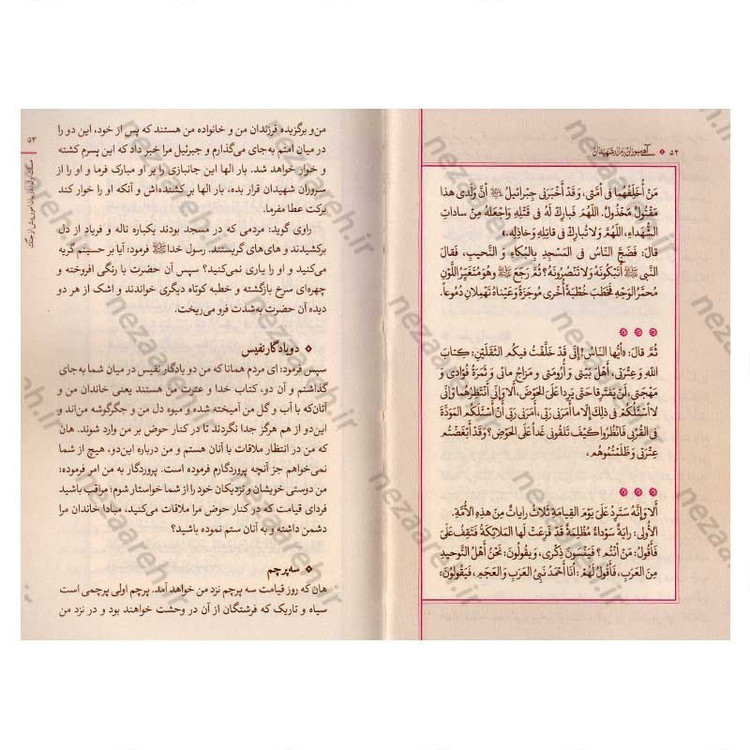 ۵۲ ● آهی سوزان بر مزار شهیدان
مَنْ أُخَلِّفُهُما فی أُمَّتی، وَقَدْ أَخْبَرَنی جِبْرائیلُ أَنَّ وَلَدی هذا
مَقْتُولٌ مَخْذُولٌ، اَللّهُمَّ فَبارِكْ لَهُ فی قَتْلِهِ وَاجْعَلْهُ مِنْ ساداتِ
الشُّهَداءِ، اَللّهُمَّ وَلا تُبارِكْ فی قاتِلِهِ وَخاذِلِهِ.»
قالَ: فَضَجَّ النّاسُ فی الْمَسْجِدِ بِالْبُكاءِ وَ النَّحیبِ، فَقالَ
النَّبی ﷺ أَتَبْكُونَهُ وَلا تَنْصُرُونَهُ؟ ثُمَّ رَجَعَ ﷺ وَهُوَ مُتَغَیِّرُ اللَّوْنِ
مُحْمَرُّ الْوَجْهِ فَخَطَبَ خُطْبَةً أُخْری مُوجَزَةً وَعَیْناهُ تَهْمِلانِ دُمُوعاً.
ثُمَّ قالَ: «أَیُّهَا النّاسُ! إِنّی قَدْ خَلَّفْتُ فیكُمُ الثَّقَلَیْنِ: كِتابَ
اللهِ وَ عِتْرَتی، أَهْلَ بَیْتی وَ أَرُومَتی وَ مَزاجَ مائی وَ ثَمَرَةَ فُؤادی وَ
مُهْجَتی، لَنْ یَفْتَرِقا حَتّی یَرِدا عَلَیَّ الْحَوْضَ، أَلا وَإِنّی أَنْتَظِرُهُما وَإِنّی
لا أَسْئَلُكُمْ فی ذلِكَ إِلّا ما أَمَرَنی رَبّی، أَمَرَنی رَبّی أَنْ أَسْئَلَكُمُ الْمَوَدَّةَ
فِی الْقُرْبی فَانْظُرُوا كَیْفَ تَلْقَونی غَداً عَلَی الْحَوْضِ؟ وَقَدْ أَبْغَضْتُمْ
عِتْرَتی وَ ظَلَمْتُمُوهُمْ.
أَلا وَإِنَّهُ سَتَرِدُ عَلَیَّ یَوْمَ الْقِیامَةِ ثَلاثُ رایاتٍ مِنْ هذِهِ الْأُمَّةِ.
الأُولی: رایَةٌ سَوْداءُ مُظْلِمَةٌ قَدْ فَزِعَتْ لَهَا الْمَلائِكَةُ فَتَقِفُ عَلَیَّ
فَأَقُولُ: مَنْ أَنْتُمْ؟ فَیَنْسَوْنَ ذِكْری، وَ یَقُولُونَ: نَحْنُ أَهْلُ التَّوْحیدِ
مِنَ الْعَرَبِ، فَأَقُولُ لَهُمْ: أَنَا أَحْمَدُ نَبِیُّ الْعَرَبِ وَ الْعَجَمِ، فَیَقُولُونَ:
۵۳
من و برگزیده فرزندان من و خانواده من هستند که پس از خود، این دو را
در میان امتم به جای می‌گذارم و جبرئیل مرا خبر داد که این پسرم کشته
و خوار خواهد شد. بار الها این جانبازی را بر او مبارک فرما و او را از
سروران شهیدان قرار بده، بار الها بر کشنده‌اش و آنکه او را خوار کند
برکت عطا مفرما.
راوی گوید: مردمی که در مسجد بودند یکباره ناله و فریاد از دل
برکشیدند و های‌های گریستند. رسول خدا ﷺ فرمود: آیا بر حسینم گریه
می‌کنید و او را یاری نمی‌کنید؟ سپس آن حضرت با رنگی افروخته و
چهره‌ای سرخ بازگشته و خطبه کوتاه دیگری خواندند و اشک از هر دو
دیده آن حضرت به‌شدت فرو می‌ریخت.
❖ دو یادگار نفیس
سپس فرمود: ای مردم همانا که من دو یادگار نفیس در میان شما به‌جای
گذاشتم و آن دو، کتاب خدا و عترت من هستند یعنی خاندان من و
آنان‌که با آب و گل من آمیخته شده و میوه دل من و جگرگوشه من‌اند و
این‌دو از هم هرگز جدا نگردند تا در کنار حوض بر من وارد شوند. هان
که من در انتظار ملاقات با آنان هستم و من درباره این‌دو، هیچ از شما
نمی‌خواهم جز آنچه پروردگارم فرموده است. پروردگار به من امر فرموده:
من دوستی خویشان و نزدیکان خود را از شما خواستار شوم؛ مراقب باشید
فردای قیامت که در کنار حوض مرا ملاقات می‌کنید، مبادا خاندان مرا
دشمن داشته و به آنان ستم نموده باشید؟
❖ سه پرچم
هان که روز قیامت سه پرچم نزد من خواهد آمد. پرچم اولی پرچمی است
سیاه و تاریک که فرشتگان از آن در وحشت خواهند بود و در نزد من
nezaareh.ir